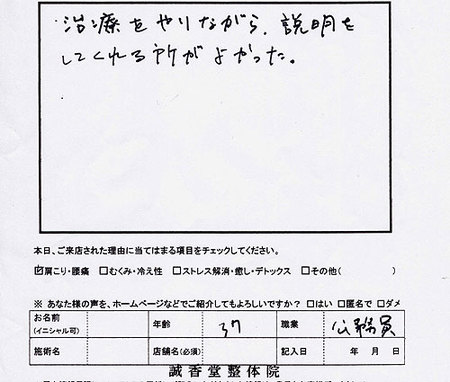 治療をやりながら、説明を
してくれる所がよかった。
本日、ご来店された理由に当てはまる項目をチェックしてください。
☑肩こり・腰痛 □むくみ・冷え性 □ストレス解消・癒し・デトックス □その他( )
※ あなた様の声を、ホームページなどでご紹介してもよろしいですか? □はい □匿名で □ダメ
お名前 (イニシャル可) 年齢 37 職業 公務員
施術名 店舗名(必須) 記入日 年 月 日
誠香堂整体院